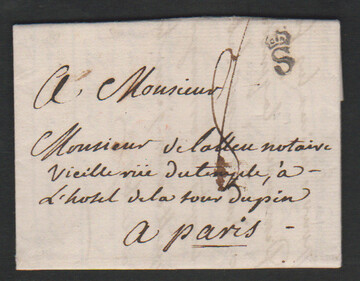 A Monsieur
Monsieur delalleu notaire
Vieille rüe du temple, à
L'hostel de la tour dupin
a paris
S